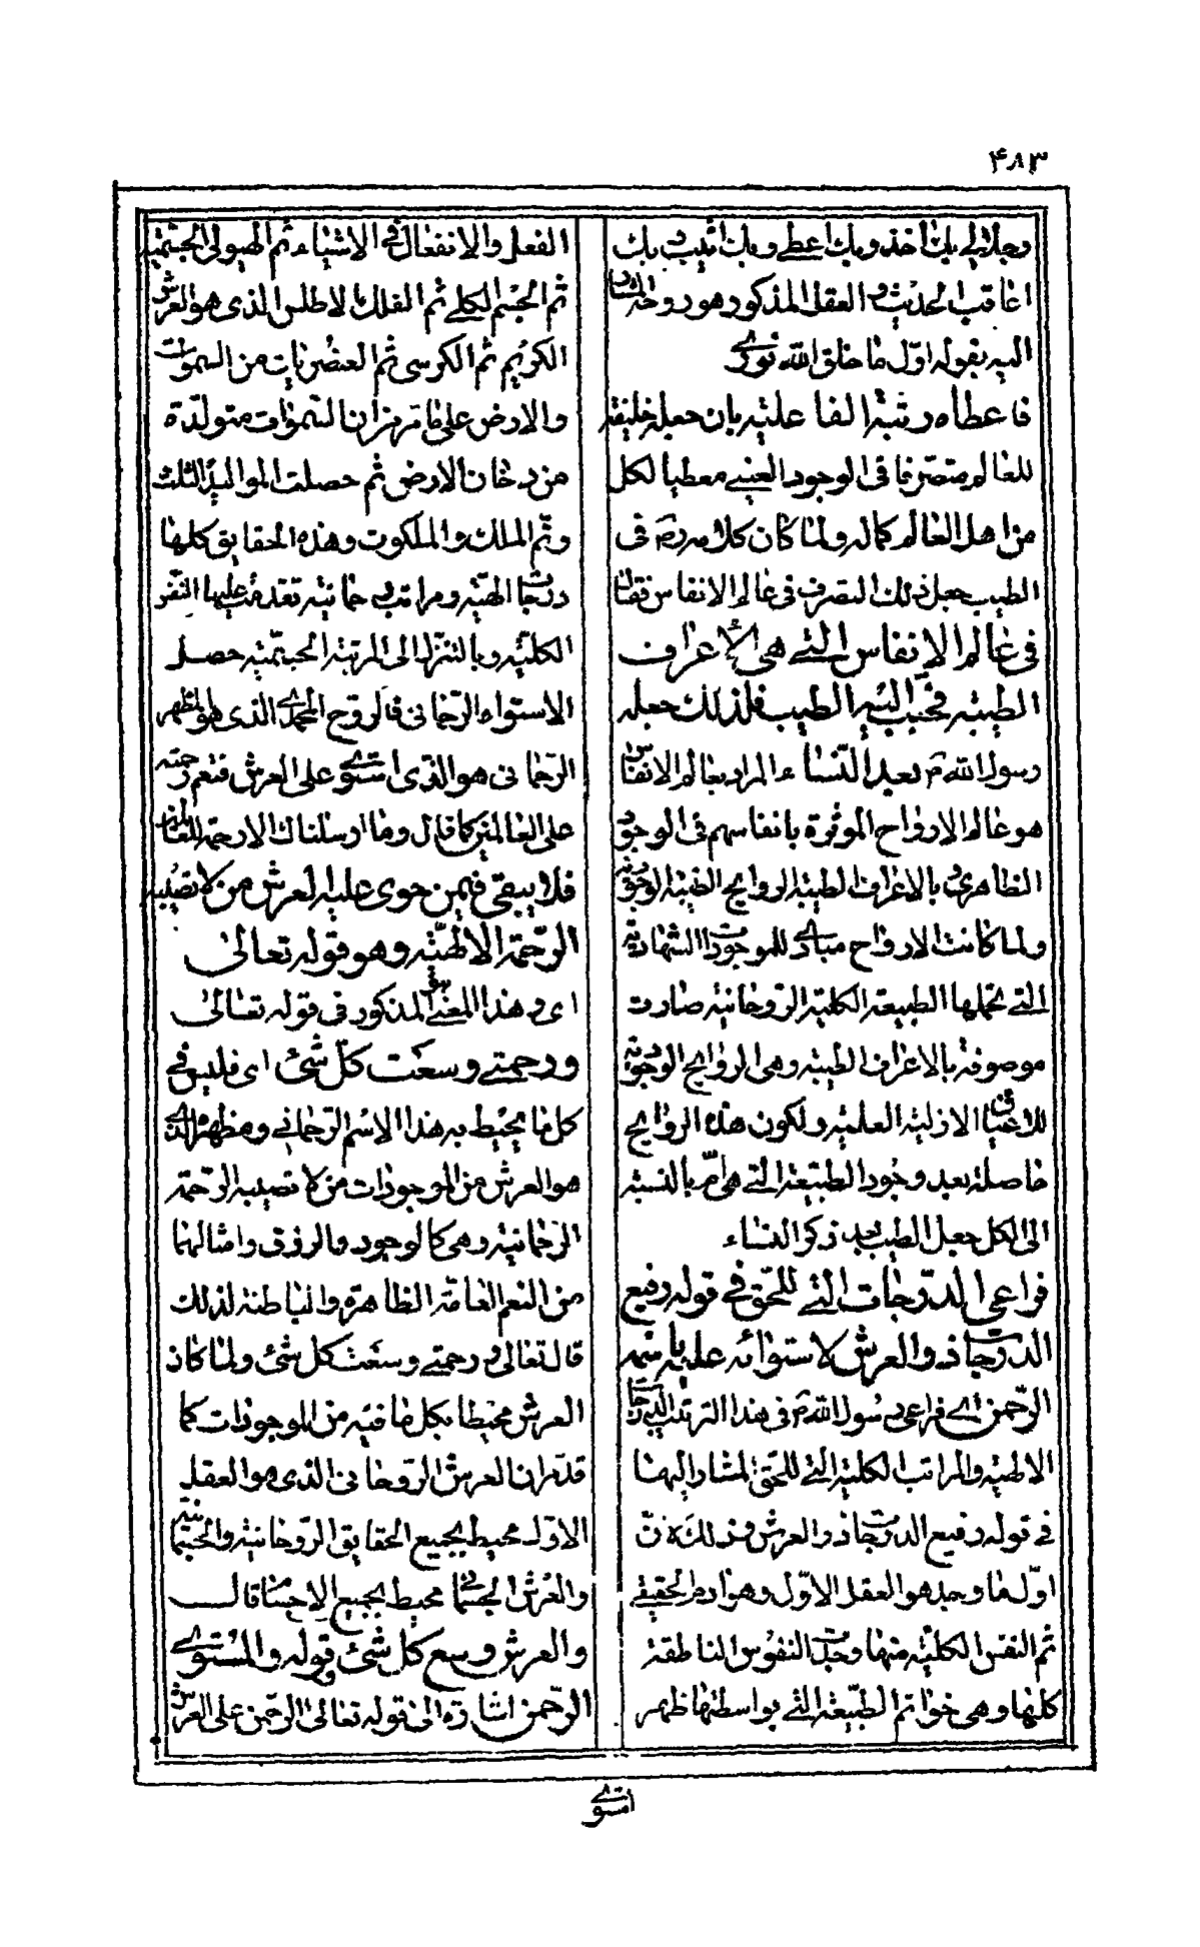 ۴۸۳
وجلالی بك اخذ وبك اعطی وبك اثیب وبك
اعاقب الحدیث والعقل المذكور هو روحه المشار
الیه بقوله اوّل ما خلق الله نوری
فاعطاه رتبة الفاعلیة بان جعله خلیفة
للعالم متصرّفا فی الوجود العینی معطیا لكل
من اهل العالم كماله ولما كان كلامه رم فی
الطیب جعل ذلك التصرف فی عالم الانفاس فقال
فی عالم الانفاس التی هی الاعراف
الطیبة فحبّب الیه الطیب فلذلك جعله
رسول الله م بعد النساء المراد بعالم الانفاس
هو عالم الارواح الموثرة بانفاسهم فی الوجود
الظاهری بالاعراف الطیبة الروایح الطیبة الوجودیة
ولما كانت الارواح مبادی للموجودات الشهادیة
التی تحملها الطبیعة الكلیة الروحانیة صارت
موصوفة بالاعراف الطیبة وهی الروایح الوجودیة
للاعیان الازلیة العلمیة ولكون هذه الروایح
حاصلة بعد وجود الطبیعة التی هی امّ بالنسبة
الی الكل جعل الطیب بعد ذكر النساء
فراعی الدّرجات التی للحقّ فی قوله رفیع
الدّرجات ذو العرش لاستوائه علیه باسمه
الرّحمن ای فراعی رسول الله م فی هذا الترتیب الدرجات
الالهیة والمراتب الكلیة التی للحقّ المشار الیها
فی قوله رفیع الدرجات ذو العرش وذلك لانّ
اوّل ما وجد هو العقل الاوّل وهو ادم الحقیقی
ثم النفس الكلیّة منها وجدت النفوس الناطقة
كلها وهی حوا ثم الطبیعة التی بواسطتها ظهر
الفعل والانفعال فی الاشیاء ثم الهیولی الجسمیة
ثم الجسم الكلی ثم الفلك الاطلس الذی هو العرش
الكریم ثم الكرسی ثم العنصریات من السموات
والارض علی ما مر من ان السموات متولدة
من دخان الارض ثم حصلت الموالید الثلث
وتمّ الملك والملكوت وهذه الحقایق كلها
درجات الهیّة ومراتب رحمانیة تقدمت علیها النفس
الكلیّة وبالتنزل الی المرتبة الجسمیّة حصل
الاستواء الرّحمانی فالروح المحمدی الذی هو المظهر
الرّحمانی هو الذی استوی علی العرش فتعم رحمته
علی العالمین كما قال وما ارسلناك الا رحمة للعالمین
فلا یبقی فیمن حوی علیه العرش من لا تصیبه
الرّحمة الالهیّة وهو قوله تعالی
ای وهذا المعنی هو المذكور فی قوله تعالی
ورحمتی وسعت كلّ شئ ای فلیس فی
كل ما یحیط به هذا الاسم الرّحمانی ومظهره الذی
هو العرش من الموجودات من لا تصیبه الرّحمة
الرّحمانیة وهی كالوجود والرزق وامثالهما
من النعم العامّة الظاهرة والباطنة لذلك
قال تعالی ورحمتی وسعت كل شئ ولما كان
العرش محیطا بكل ما فیه من الموجودات كما
قد مر ان العرش الروحانی الذی هو العقل
الاوّل محیط بجمیع الحقایق الروحانیة والجسمانیة
والعرش الجسمانی محیط بجمیع الاجسام قال
والعرش وسع كل شئ وقوله والمستوی
الرّحمن اشارة الی قوله تعالی الرّحمن علی العرش
استوی